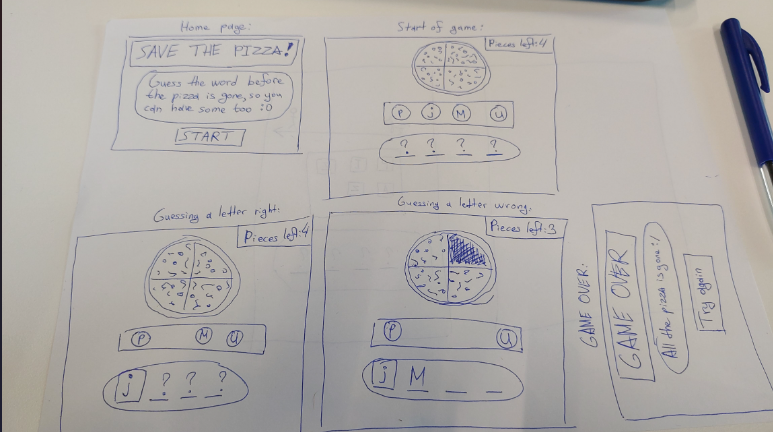 Home page:
SAVE THE PIZZA!
Guess the word before
the pizza is gone, so you
can have some too :O
START
Start of game:
Pieces left:4
P j M U
? ? ? ?
Guessing a letter right:
Pieces left:4
P M U
j ? ? ?
Guessing a letter wrong.
Pieces left:3
P U
j M _ _
GAME OVER:
GAME OVER
All the pizza is gone :/
Try again